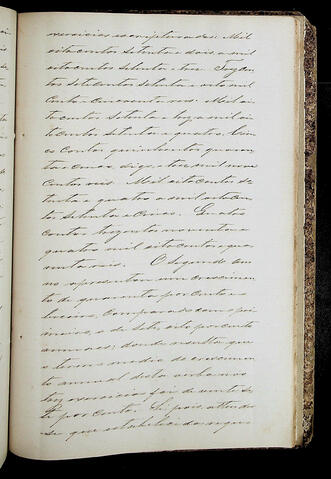 exercicios escripturados: Mil
oitocentos setenta e dois a mil
oitocentos setenta e tres. Trezen
tos setecentos setenta e oito mil
cento e cincoenta reis: Mil oi
tocentos setenta e tres a mil oi
tocentos setenta e quatro. Cin
co contos quinhentos quaren
ta e cinco, digo, e tres mil nove
centos reis. Mil oitocentos se
tenta e quatro a mil oitocen
tos setenta e cinco.
contos trezentos noventa e
quatro mil oitocentos e qua
renta reis. O segundo an
no apresentou um crescimen
to de quarenta por cento e o
terceiro, comparado com o pri
meiro, o de sete, oito por cento
annuaes; donde resulta que
o termo medio do crescimen
to annual desta verba nos
tres exercicios foi de vinte se
te por cento. Se pois, attenden
se que estabelecida a segun